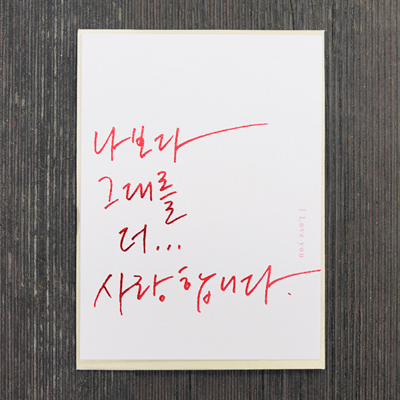 나보다
그대를
더...
사랑합니다.
I Love you